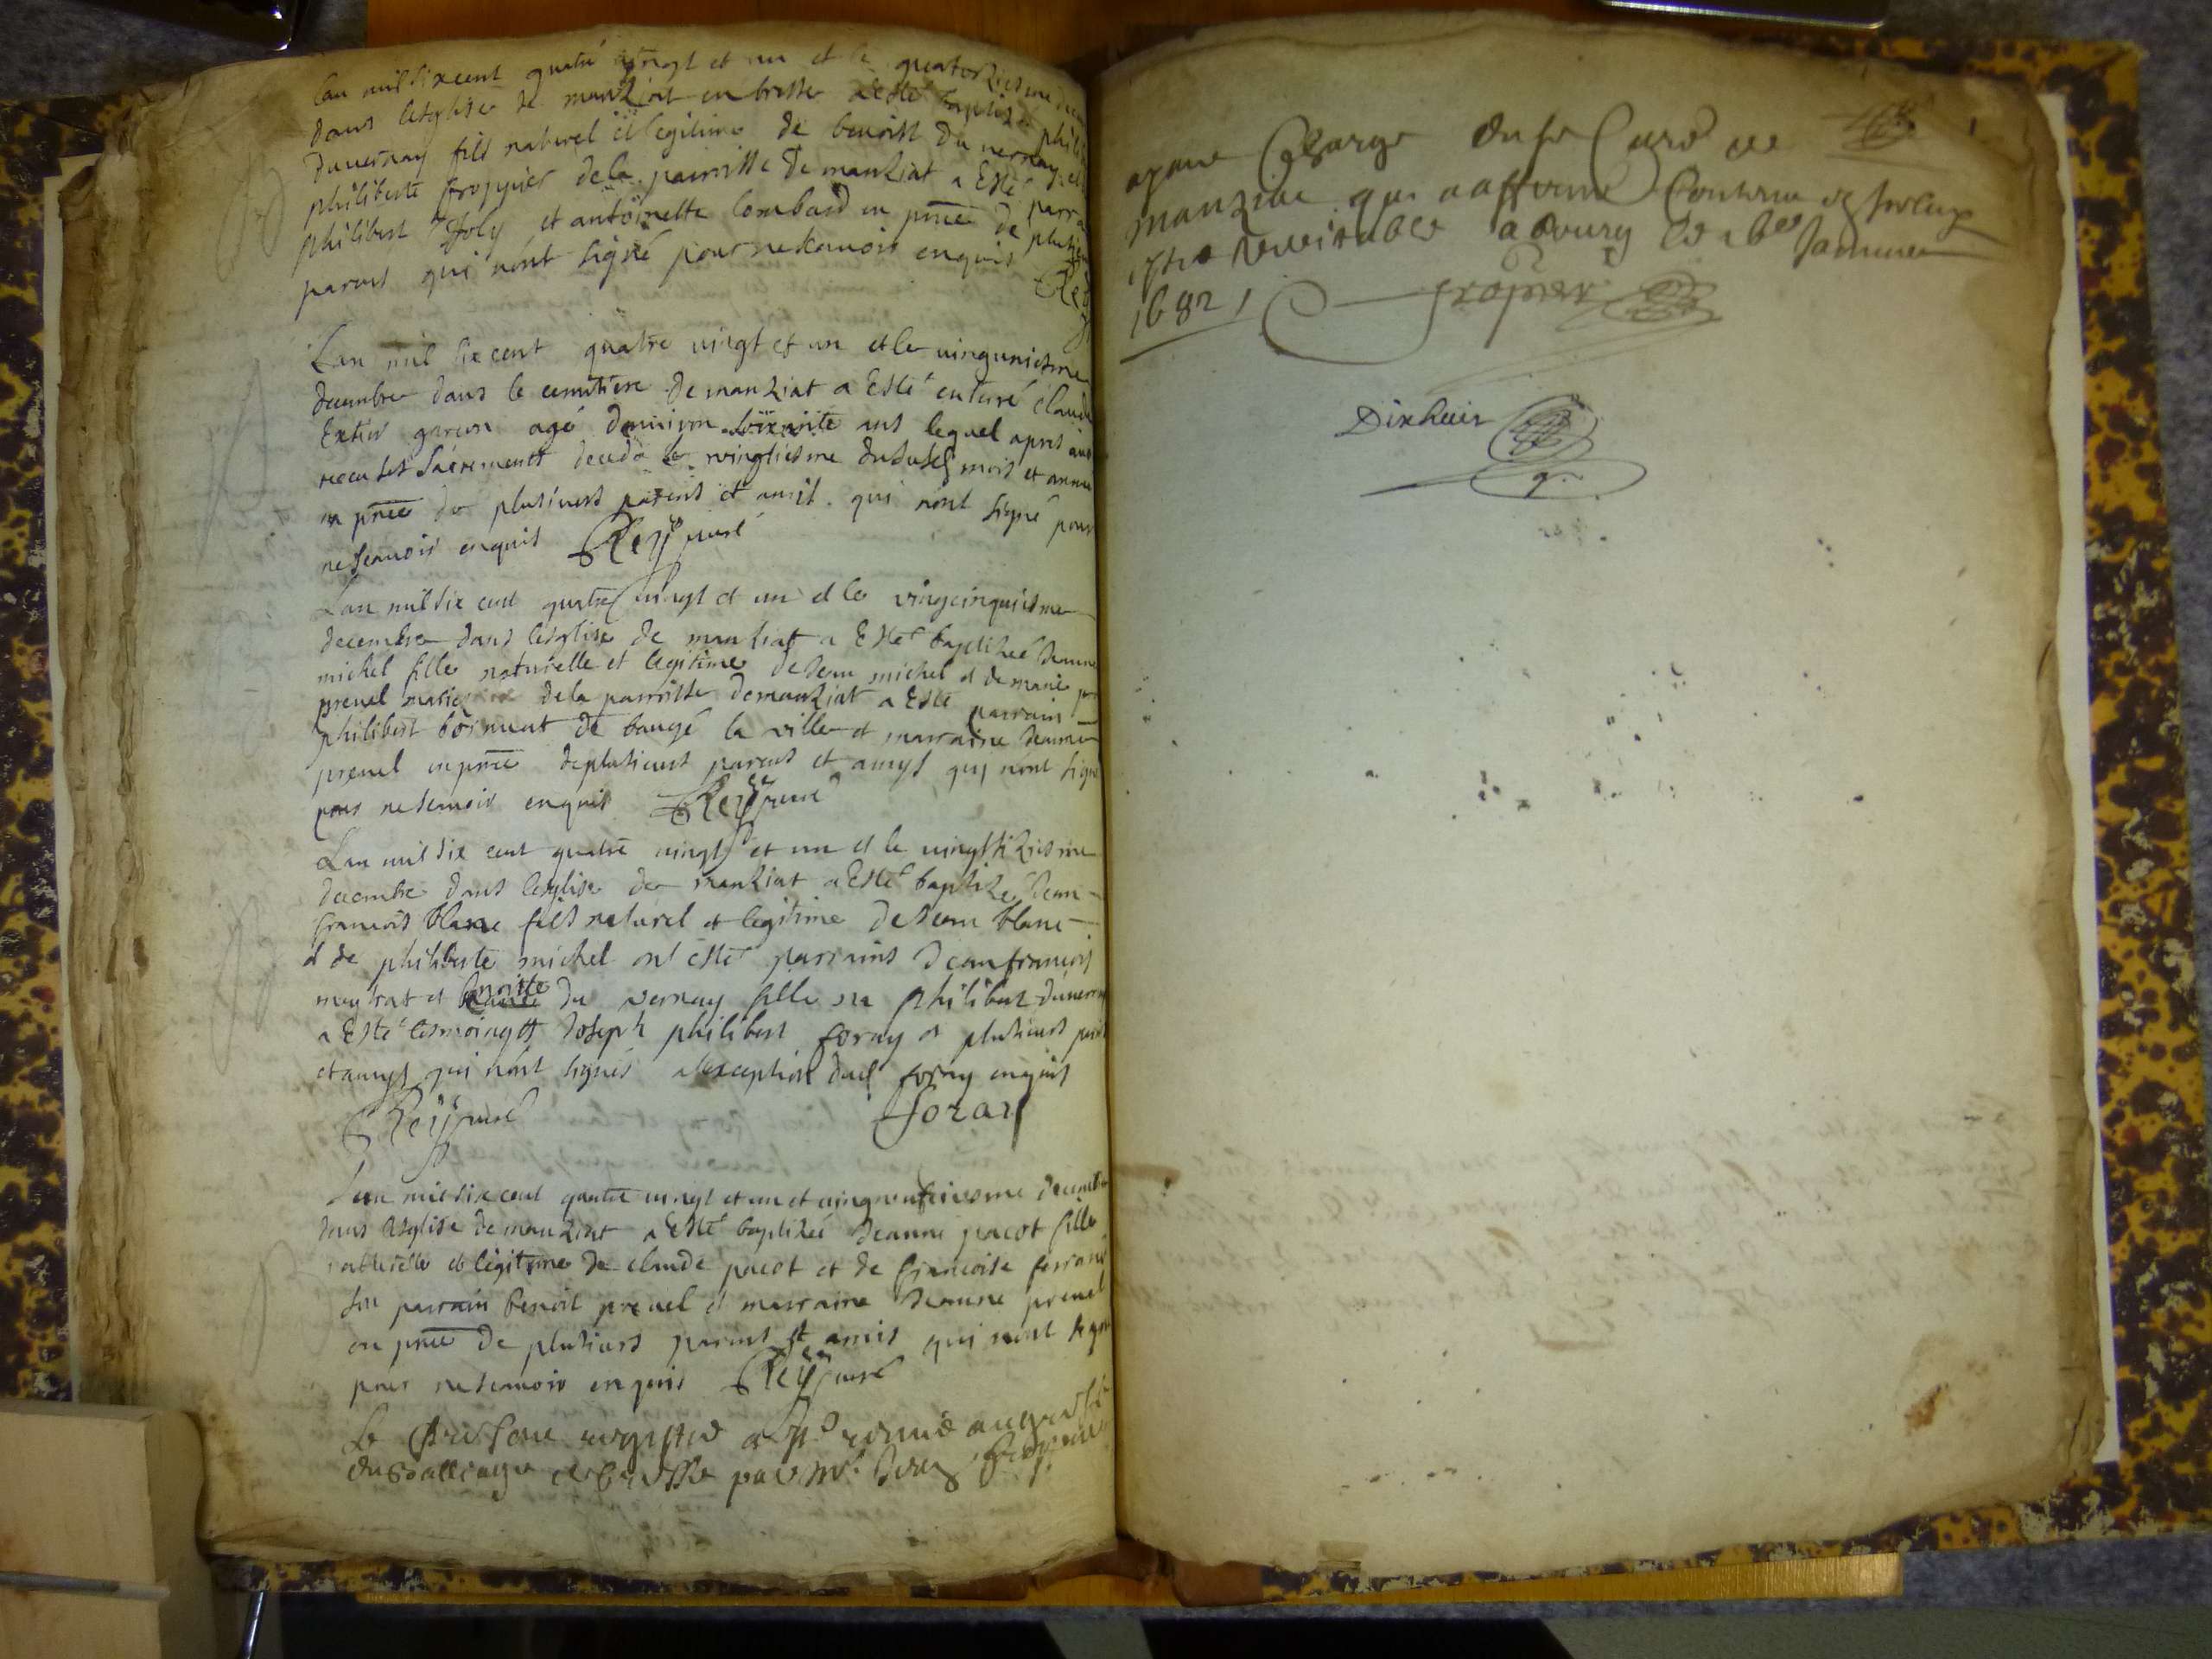 Lan mil sixcent quatre vingt et un et le quatorziesme
dans lesglise de manziat en bresse a esté baptisé
duvernay fils naturel et legitime de benoist du vernay et
philiberte froppier de la parroisse de manziat a Esté parra
philibert Joly et antoinette lombard en pnce de plusieurs
parens qui nont signé pour ne scavoir enquis
Lan mil six cent quatre vingt et un et le vinguniesme
decembre dans le cemitiere de manziat a Esté enterré claude
garcon agé denviron soixante ans lequel apres
receu les sacrements deceda le vingtiesme dudit mois et annee
en pnce de plusieurs parens et amis qui nont signé pour
ne scavoir enquis Reÿ curé
Lan mil six cent quatre vingt et un et le vingcinquiesme
decembre dans lesglise de manziat a Esté baptizée Jeanne
michel fille naturelle et legitime de Jean michel et de marie
prevel de la parroisse de manziat a Esté parrain
philibert de baugé la ville et marraine Jeanne
prevel en pnce de plusieurs parens et amys qui nont signé
pour ne scavoir enquis Reÿ curé
Lan mil six cent quatre vingt et un et le vingtsiziesme
decembre dans lesglise de manziat a Esté baptizé Jean
francois blanc fils naturel et legitime de Jean blanc
et de philiberte michel ont esté parrains Jean francois
et benoitte du vernay fille de philibert duvernay
a Esté tesmoingtt Joseph philibert foray et plusieurs
et amys qui nont signés a lexception dud foray enquis
Reÿ curé foray
Lan mil six cent quatre vingt et un et vingneufviesme decembre
dans lesglise de manziat a Esté baptizée Jeanne pacot fille
naturelle et legitime de claude pacot et de francoise ferrand
son parrain benoit prevel et marraine Jeanne prevel
en pnce de plusieurs parens et amis qui nont signé
pour ne scavoir enquis Reÿ curé
Le present registre a esté remis au greffe
du Balliage de bresse par Mr
ayant charge du sr Curé de
manziat qui a affirmé contenu
estre veritable a bourg ce Janvier
1682 /
fropier
Dixhuit